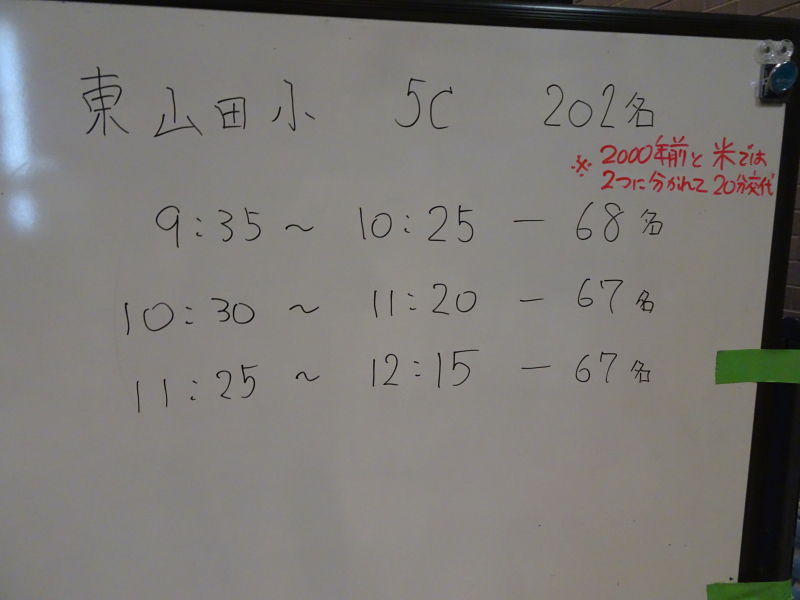 東山田小 5C 202名
※2000年前と米では
2つに分かれて20分交代
9:35～10:25－68名
10:30～11:20－67名
11:25～12:15－67名